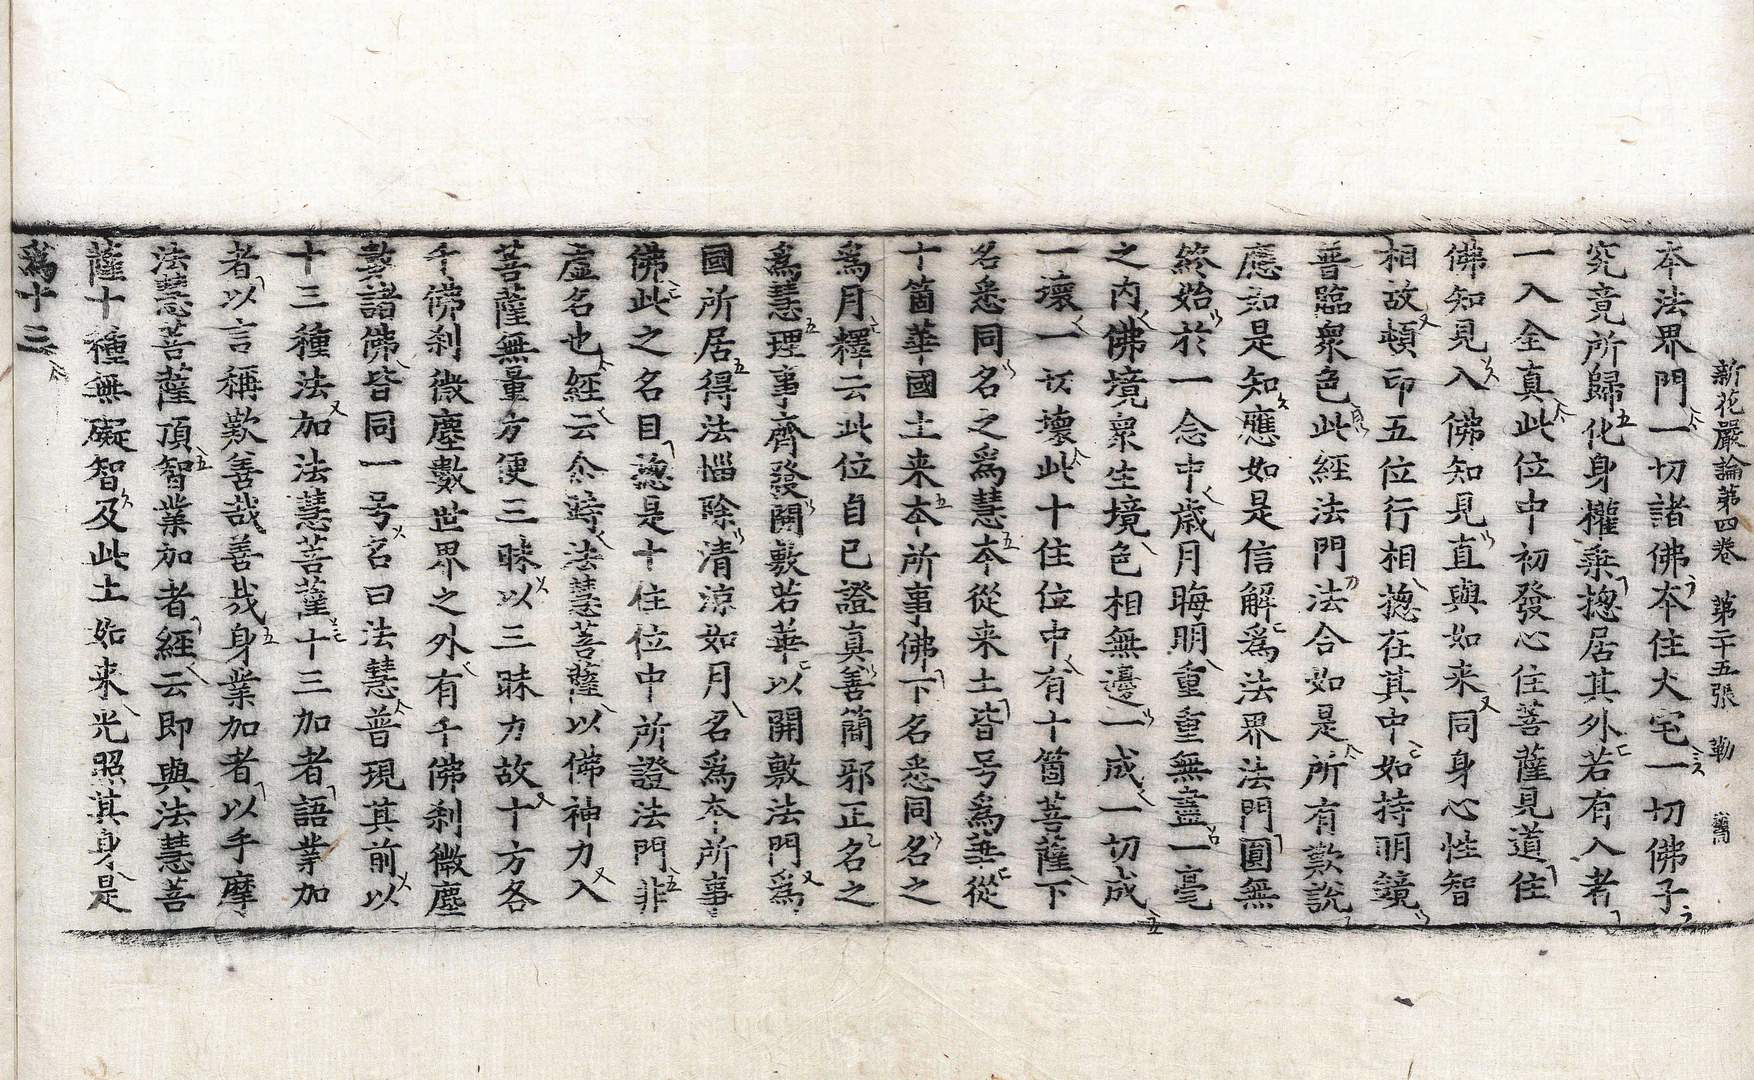 新花嚴論第四卷　第二十五張　勒
本法界門一切諸佛本住大宅一切佛子
究竟所歸化身權乗揔居其外若有入者
一入全真此位中初發心住菩薩見道住
佛知見入佛知見直與如来同身心性智
相故頓印五位行相揔在其中如持明鏡
普臨衆色此經法門法合如是所有歎說
應如是知應如是信解爲法界法門圓無
終始於一念中歲月晦明重重無盡一毫
之内佛境衆生境色相無邊一成一切成
一壞一切壞此十住位中有十箇菩薩下
名悉同名之爲慧本從来土皆号爲華從
十箇華國土来本所事佛下名悉同名之
爲月釋云此位自已證真善簡邪正名之
爲慧理事齊發開敷若華以開敷法門爲
國所居得法惱除清涼如月名爲本所事
佛此之名目揔是十住位中所證法門非
虛名也經云尒時法慧菩薩以佛神力入
菩薩無量方便三昧以三昧力故十方各
千佛刹微塵數世界之外有千佛刹微塵
數諸佛皆同一号名曰法慧普現其前以
十三種法加法慧菩薩十三加者語業加
者以言稱歎善哉善哉身業加者以手摩
法慧菩薩頂智業加者經云即與法慧菩
薩十種無礙智及此土如来光照其身是
爲十三